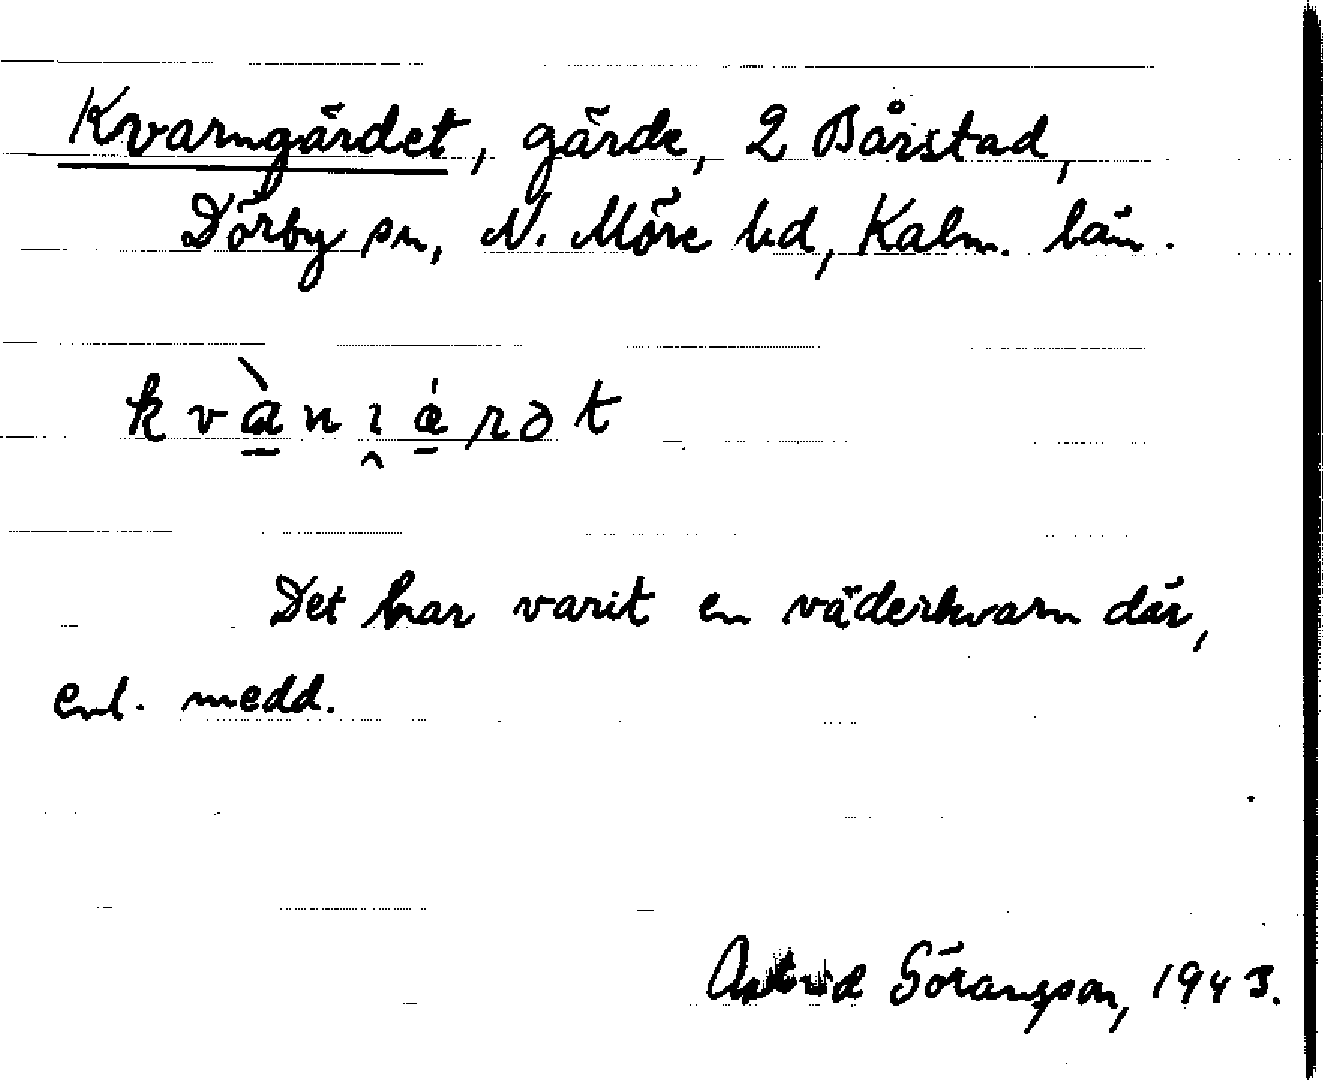 Kvarngärdet, gärde, 2 Bårstad,
Dörby sn, N. Möre hd, Kalm. län.
kvànıáɽət
Det har varit en väderkvarn där,
enl. medd.
Astrid Görangson, 1943.